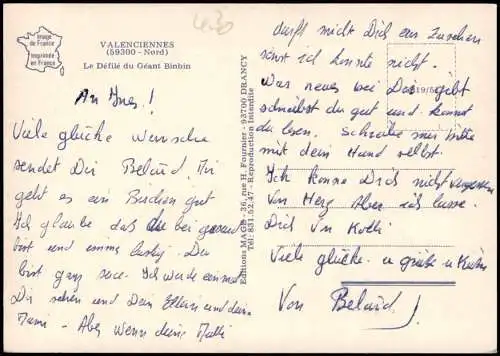 430
Image de France
Imprimée en France
VALENCIENNES
(59300 - Nord)
Le Défilé du Géant Binbin
An Ines!
Viele glücke Wünsche
sendet Dir Belaid. Mir
geht es ein Bischen gut
Ich glaube das du bei gesund
bist und immer lustig. Du
bist ganz süce. Ich würde einmal
Dir sehen und Dein Eltern und dein
Mami - Aber wenn deine Mutti
Editions MAGE - 3/6, rue H. Fournier - 93700 DRANCY
Tél: 831.52.47 - Reproduction Interdite
19/5
darfst nicht Dich ein zusehen
sonst ich konnte nicht.
Was neues bei Dir gibt
schreibst du gut und kannst
du lesen. Schreibe mir bitte
mit dein Hand selbst.
Ich kanne Dich nicht vergessen
von Herz Aber ich lasse
Dich von
Viele glücke u grüße u Küsse
Von Belaid